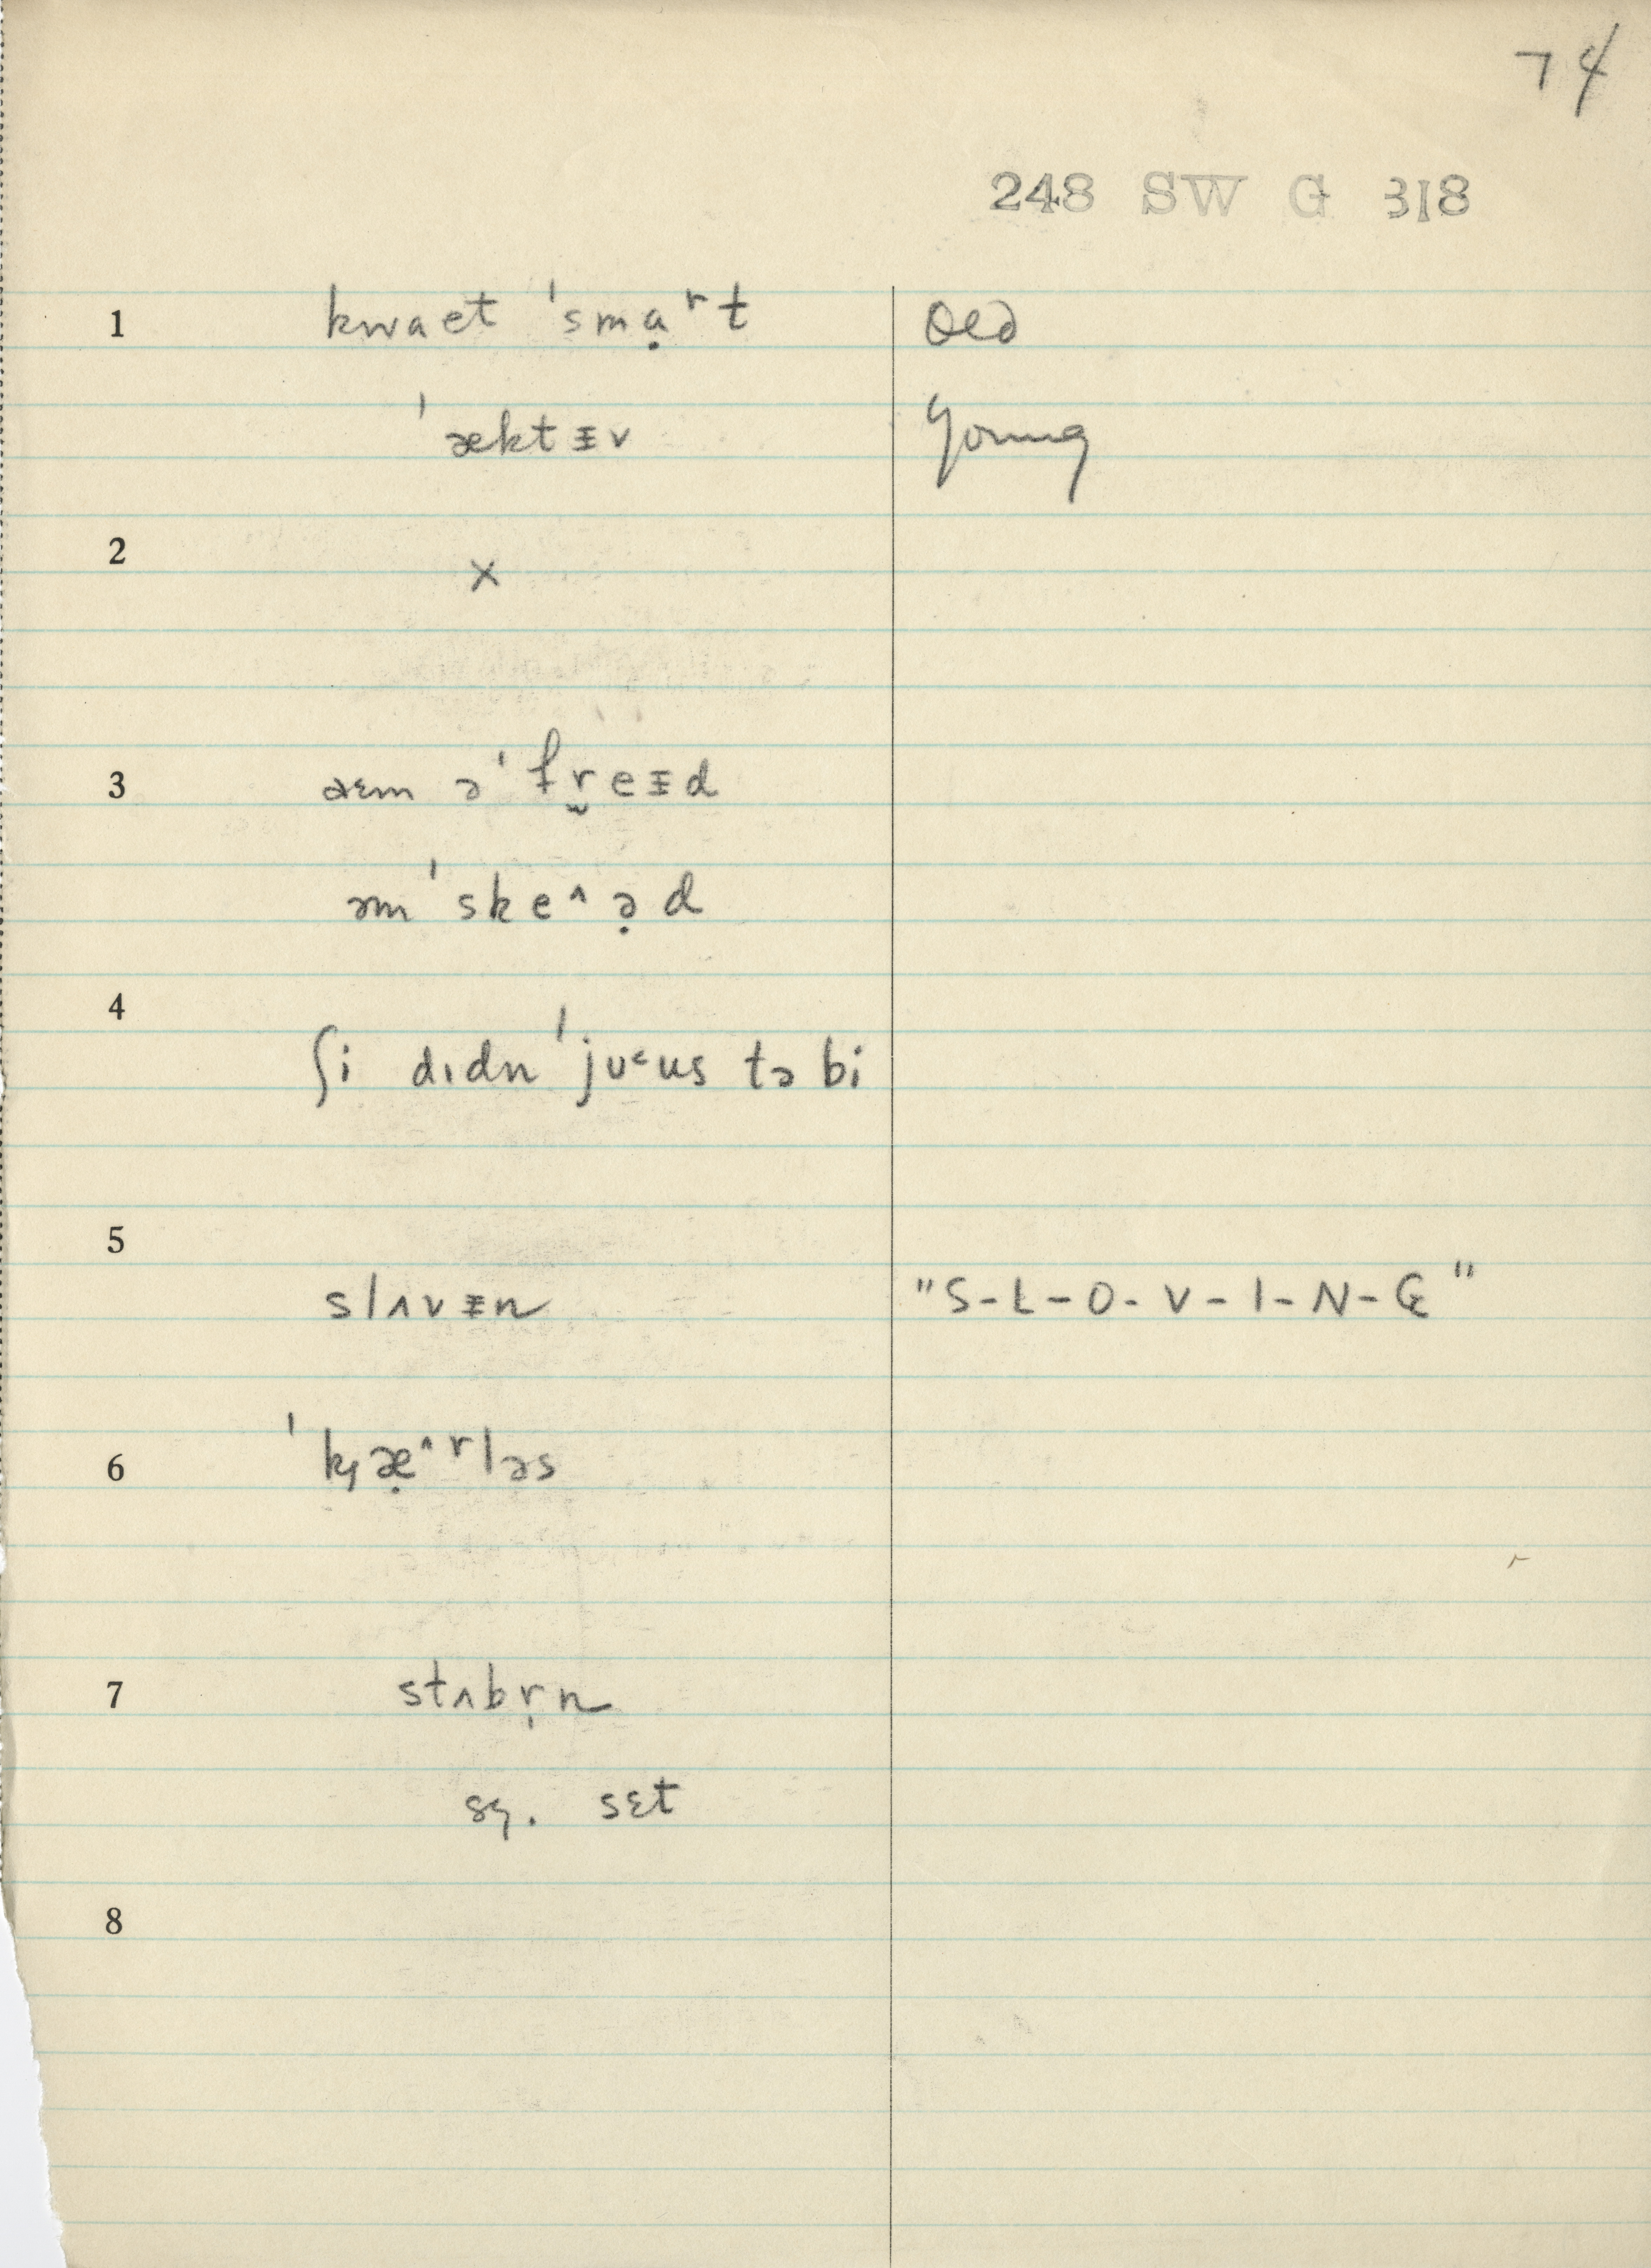 74
248 SW G 318
1 kwaet ˈsmạʳt Old
ˈæktᵻv Young
2 x
3 aɛm əˈfr̬eᵻd
əmˈske^ə̣d
4 ʃi dɪdn ˈjʊ˂us tə bi
5 slʌvᵻn "S-L-O-V-I-N-G"
6 ˈk̡æ̣^ʳləs
7 stʌbr̩n
sɛt
8